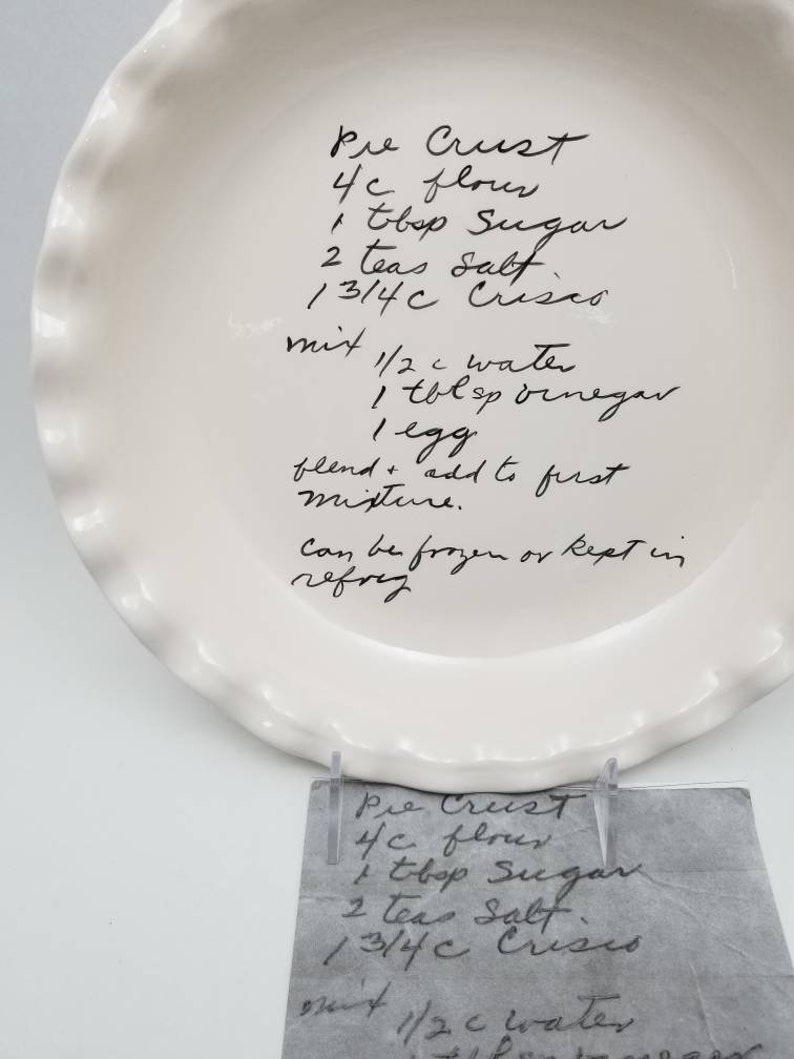 Pie Crust
4c flour
1 tbsp Sugar
2 teas Salt
1 3/4 c Crisco
mix
1/2 c water
1 tblsp vinegar
1 egg
blend + add to first
mixture.
can be frozen or kept in
refrig
Pie Crust
4c flour
1 tbsp Sugar
2 teas Salt.
1 3/4 c Crisco
mix
1/2 c water